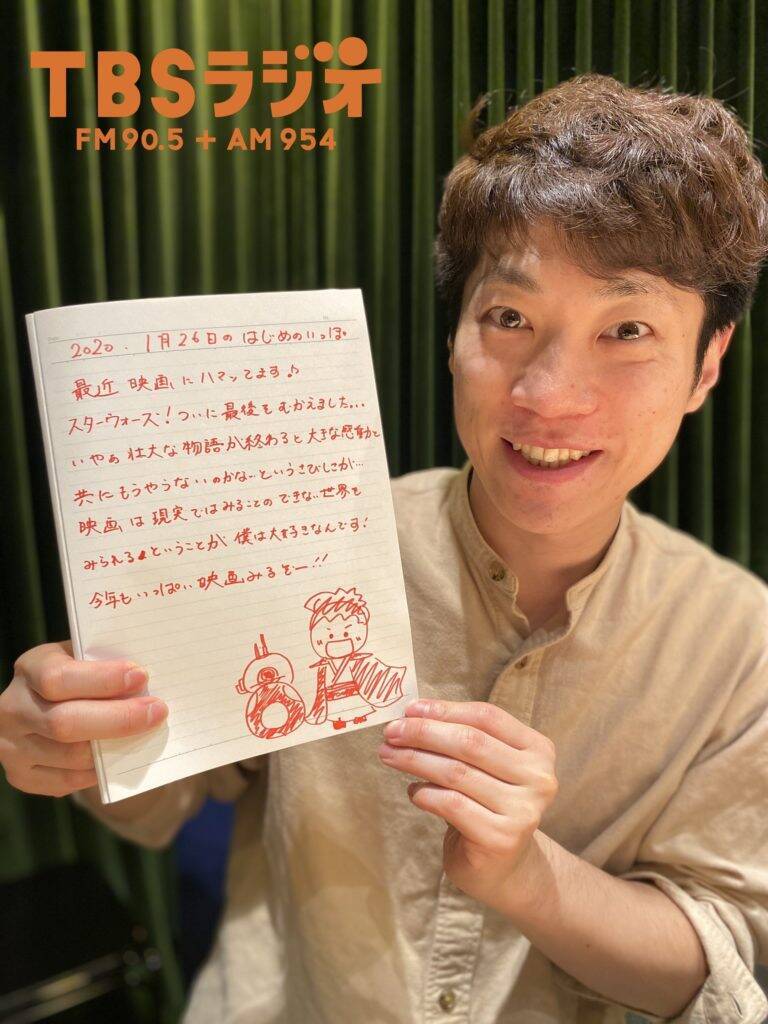 TBSラジオ
FM90.5 + AM954
2020. 1月26日の はじめのいっぽ。
最近 映画にハマッてます♪
スターウォーズ！ついに最後をむかえました...
いやぁ 壮大な物語が終わると大きな感動と
共にもうやらないのかな…というさびしさが…
映画は現実ではみることのできない世界を
みられるということが 僕は大好きなんです！
今年もいっぱい映画みるぞー!!